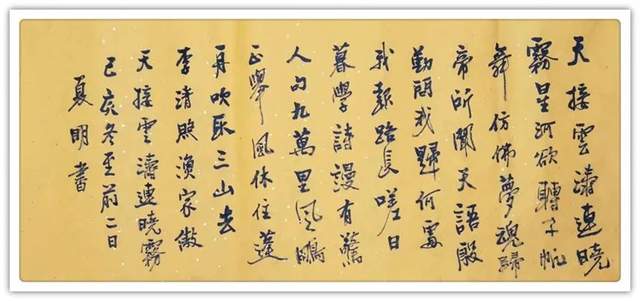 天接雲濤連曉
霧星河欲轉千帆
舞仿佛夢魂歸
帝所聞天語殷
勤問我歸何處
我報路長嗟日
暮學詩漫有驚
人句九萬里風鵬
正舉風休住蓬
舟吹取三山去
李清照漁家傲
天接雲濤連曉霧
己亥冬至前二日
夏明書